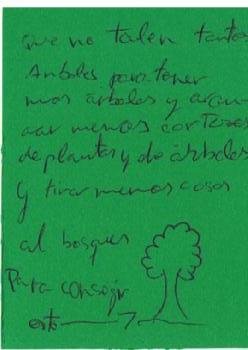 que no talen tantos
Arboles para tener
mas arboles y arran
car menos cortezas
de plantas y de árboles
y tirar menos cosas
al bosque
Para consegir
esto